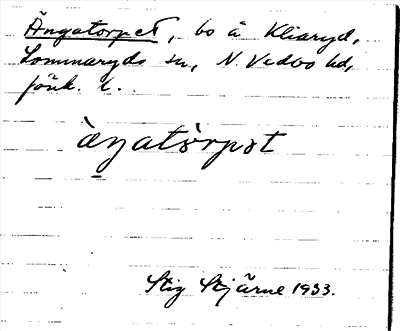 Ängatorpet, bo å Kliaryd,
Lommaryds sn, N. Vedbo hd,
Jönk. l.
àŋatòrpət
Stig Stjärne 1933.